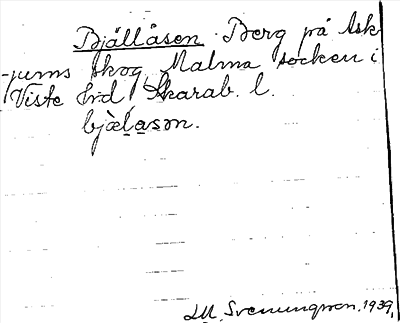 Bjällåsen. Berg på Ask-
-jums skog Malma socken i
Viste hrd Skarab. l.
bjälason.
LM. Svenungsson. 1939.